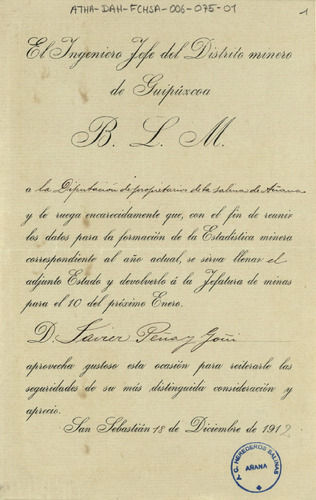 ATHA-DAH-FCHSA-006-075-01
1
El Ingeniero Jefe del Distrito minero
de Guipúzcoa
B. L. M.
a la Diputación de propietarios de la salina de Añana
y le ruega encarecidamente que, con el fin de reunir
los datos para la formación de la Estadística minera
correspondiente al año actual, se sirva llenar el
adjunto Estado y devolverlo á la Jefatura de minas
para el 10 del próximo Enero.
D. Xavier Peña y Goñi
aprovecha gustoso esta ocasión para reiterarle las
seguridades de su más distinguida consideración y
aprecio.
San Sebastián 18 de Diciembre de 1912
A. C. HEREDEROS SALINAS
AÑANA